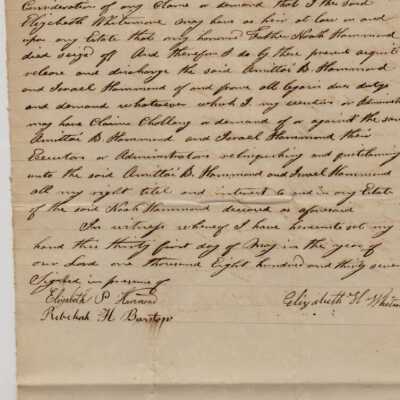 Consideration of any Claim or demand that I the said
Elizabeth Whitemore may have as heir at law in and
upon any Estate that my honored Father Noah Hammond
died seized of And therefore I do by these present acquit
release and discharge the said Amittai B. Hammond
and Israel Hammond of and from all legacies dues
and demand whatsoever which I my executors or
may have Claim Challeng or demand of or against the said
Amittai B. Hammond and Israel Hammond their
Executors or Administrators relinquishing and quitclaiming
unto the said Amittai B. Hammond and Israel Hammond
all my right titel and interest to and in any Estate
of the said Noah Hammond deceased as aforesaid
In witness whereof I have hereunto set my
hand this thirty first day of May in the year of
our Lord one thousand Eight hundred and thirty seven
Signed in presence of
Elizabeth P
Elizabeth H
Rebekah H Barstow